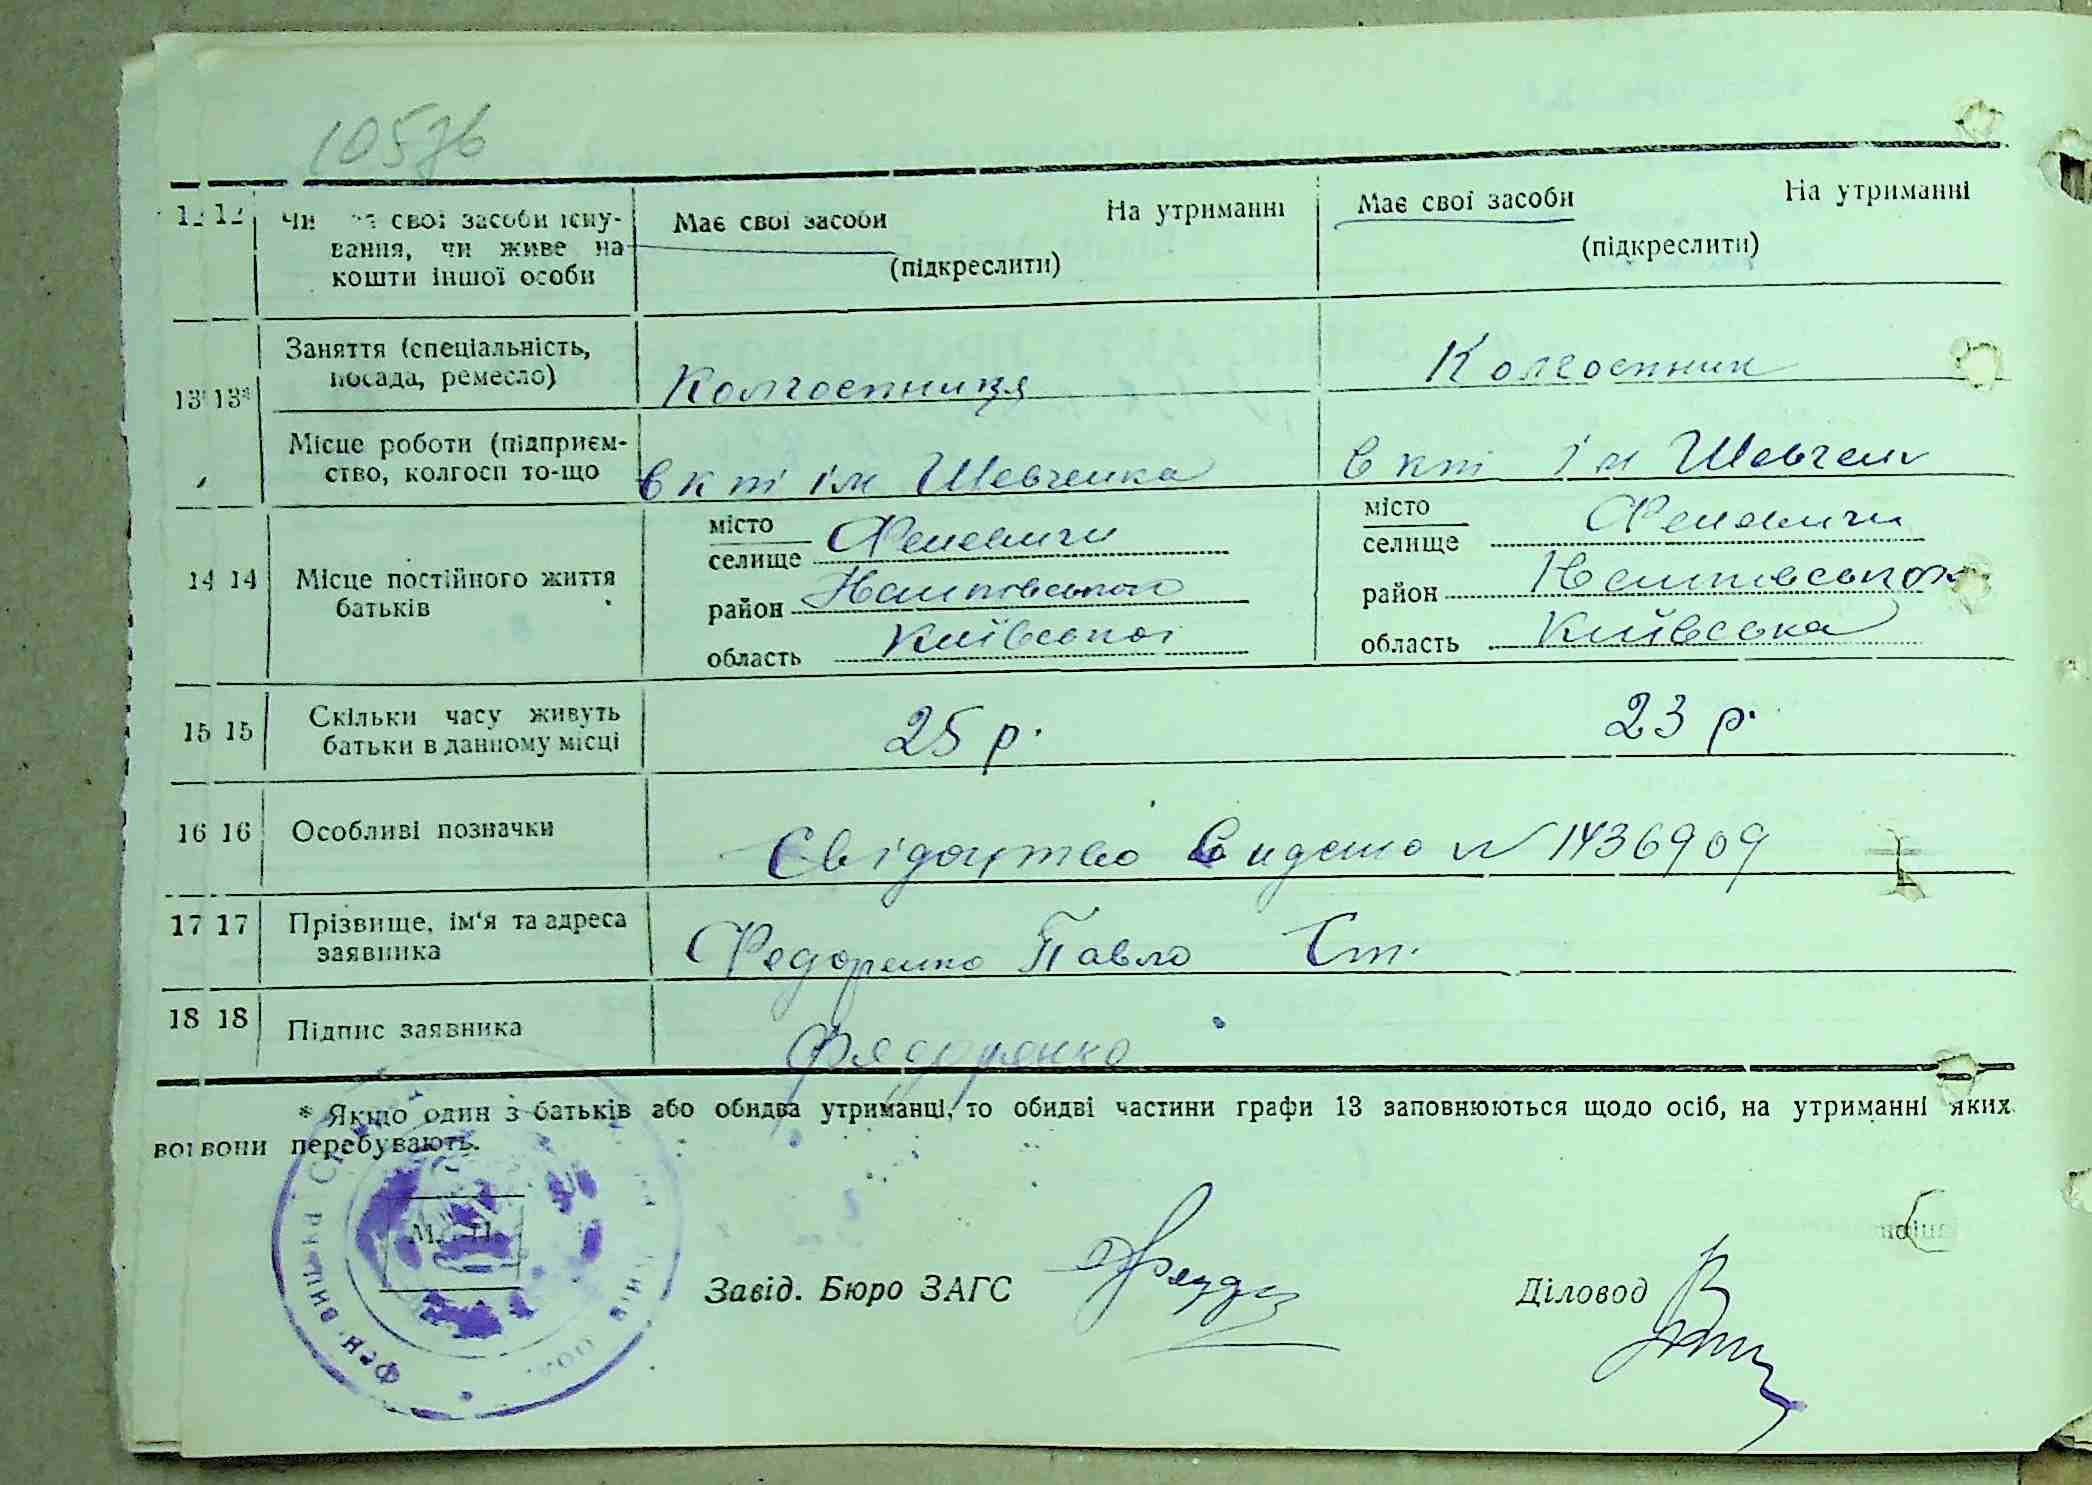 105зв
12 12 Чи свої засоби існу-
вання, чи живе на
кошти іншої особи
Має свої засоби На утриманні
(підкреслити)
Має свої засоби На утриманні
(підкреслити)
13* 13*
Заняття (спеціальність,
посада, ремесло)
Колгоспниця
Колгоспник
Місце роботи (підприєм-
ство, колгосп то-що
в кт ім Шевченка
в кт ім Шевченк
14 14 Місце постійного життя
батьків
місто
селище Феневичи
район
область Київської
місто
селище Феневичи
район
область Київська
15 15 Скільки часу живуть
батьки в данному місці
25 р.
23 р.
16 16 Особливі позначки
Свідоцтво видано N 1436909
17 17 Прізвище, ім'я та адреса
заявника
Федоренко Павло Ст.
18 18 Підпис заявника
* Якщо один з батьків або обидва утриманці, то обидві частини графи 13 заповнюються щодо осіб, на утриманні яких
вони перебувають.
М. П.
Завід. Бюро ЗАГС
Діловод